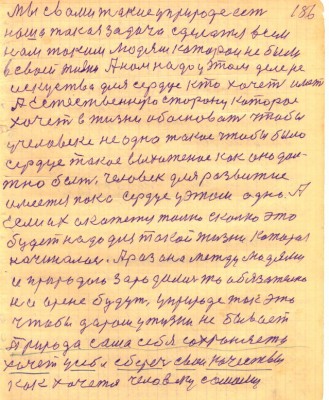 186
Мы с вами такие у природе есть
наша такая задача сделать всем
нам таким людям которой не было
в своей жизни А нам надо у этом делере
искуства для сердце кто хочет
А Естественную сторону которое
хочет в жизни обосновать чтобы
у человеке не одно такое чтобы было
сердце такое выложеное как оно дол-
жно быть. человек для развитие
имеется пока сердце у этом одно. А
сколько это
будет надо для такой жизни которая
начиналась. А раз она между людями
и природою зародилися то обязательно
и и арене будут. у природе так это
чтобы даром у жизни не бывает
природа сама себя сохроняеть
хочет у себе сберечь свои качествы
как хочется человеку самому